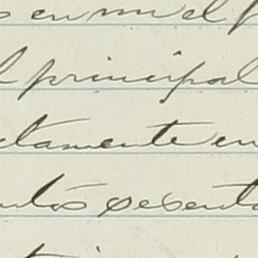 s en un el p
l principal
ctamente en
entos sesenta